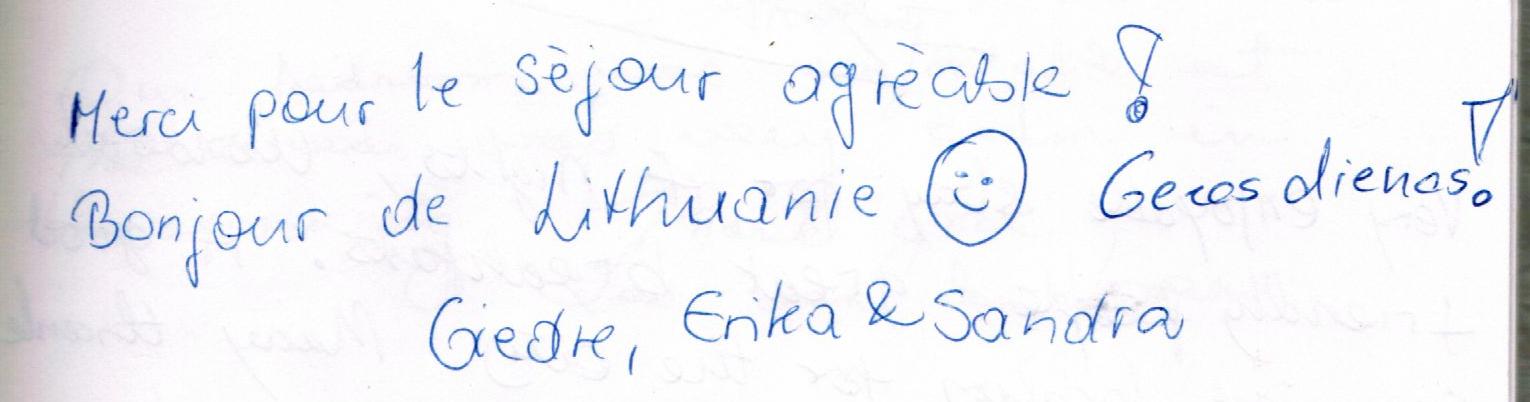 Merci pour le sèjour agrèable !
Bonjour de Lithuanie ☺ Geros dienos!
Giedre, Erika & Sandra